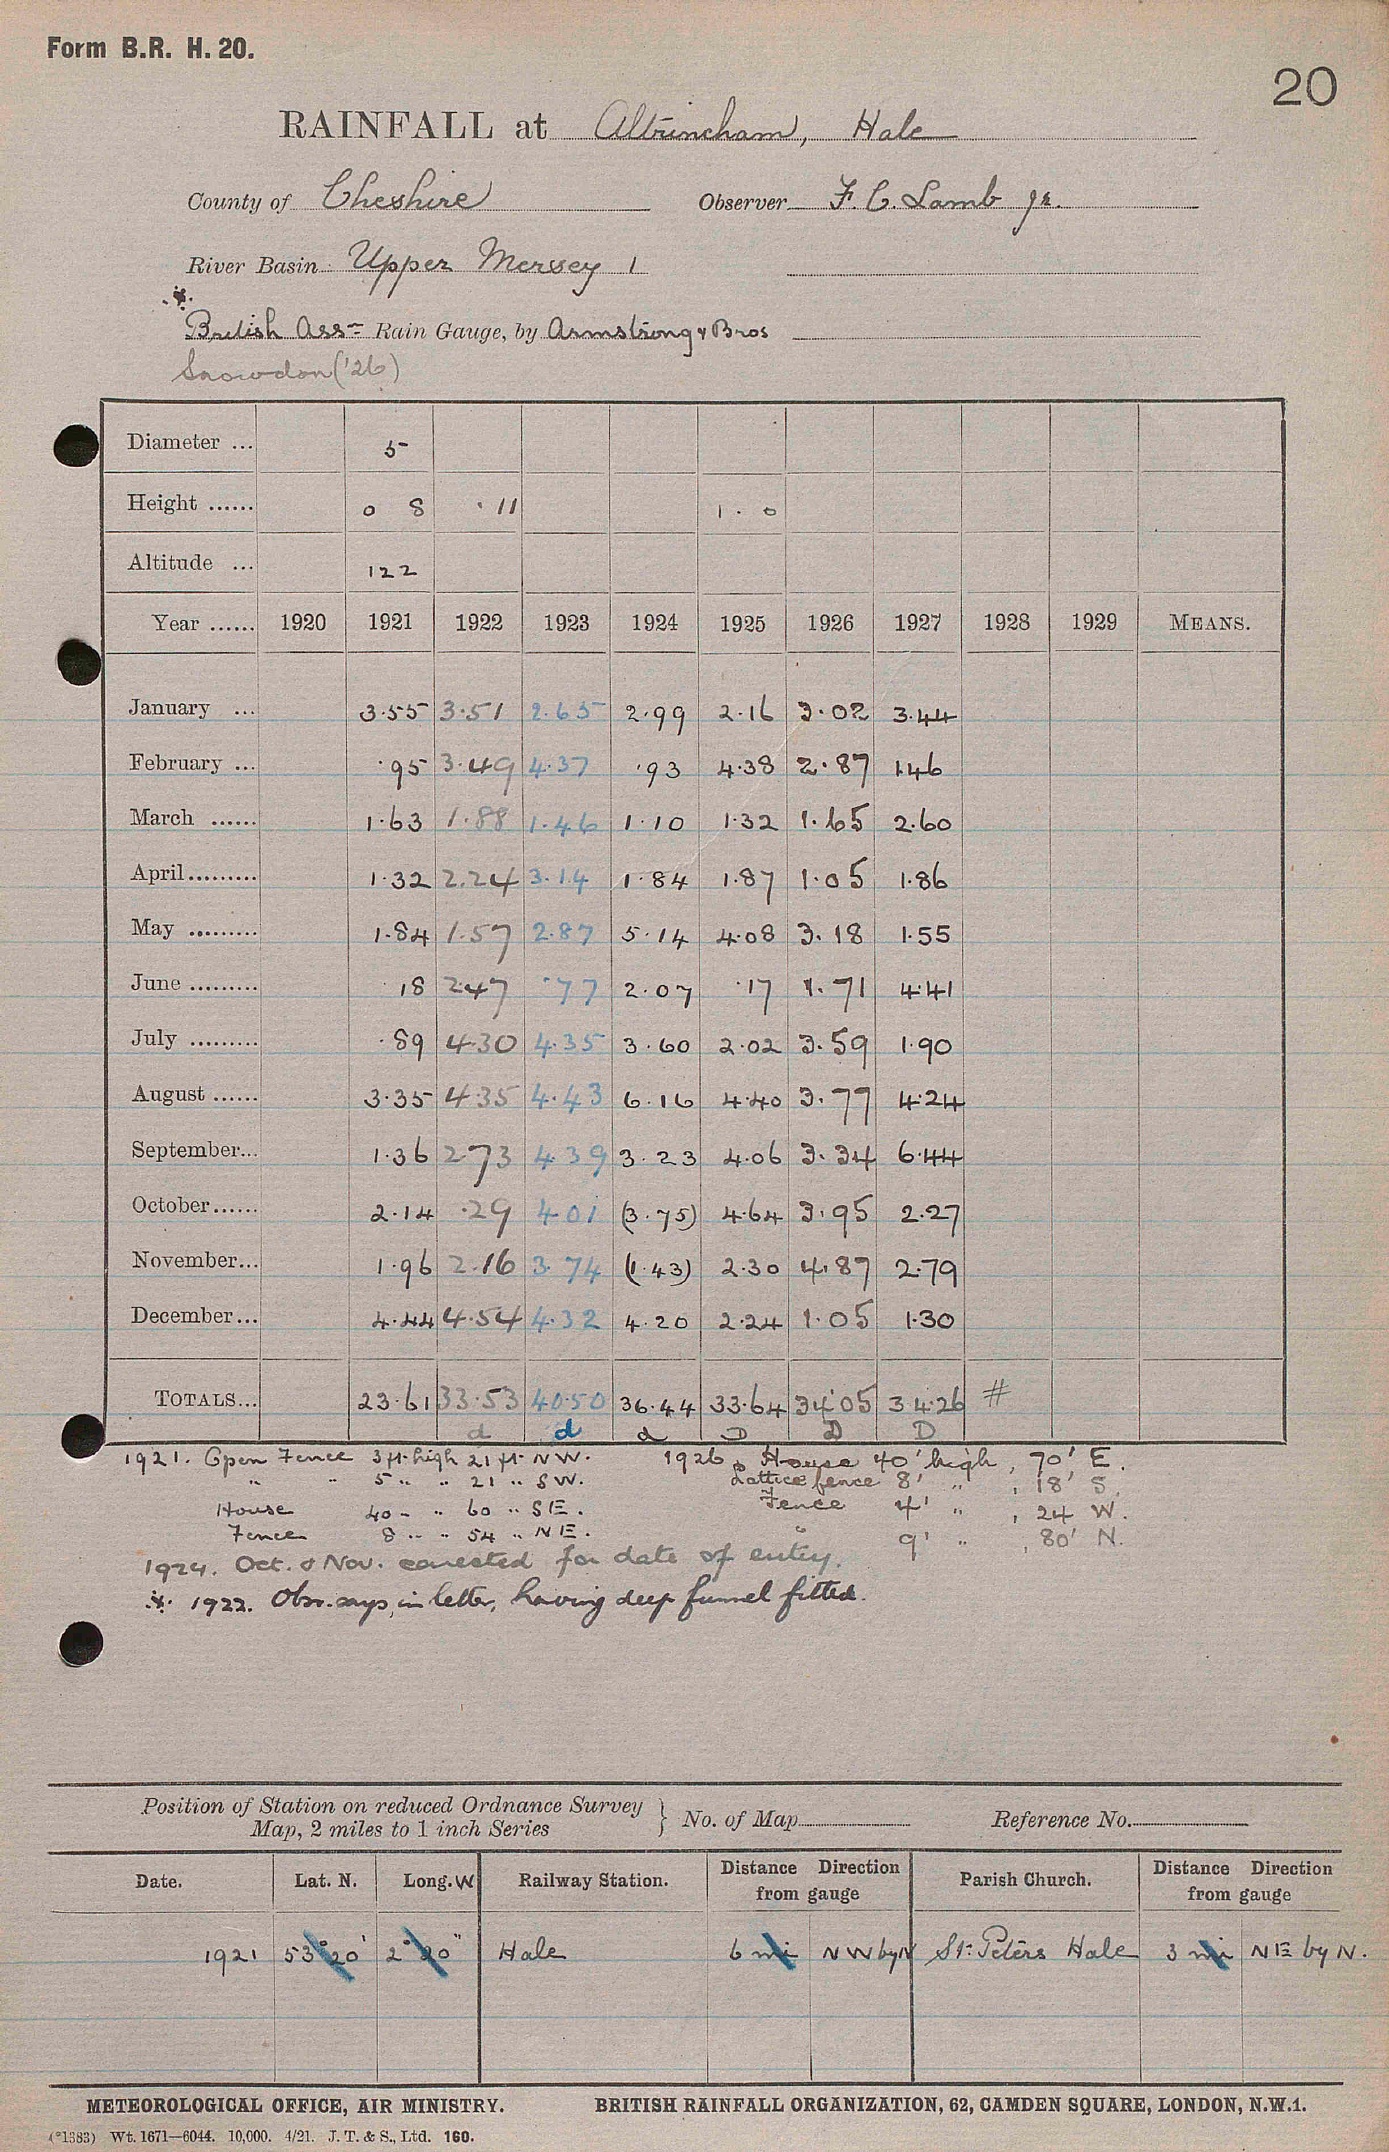 Form B.R. H. 20.
20
RAINFALL at Altrincham, Hale
County of Cheshire Observer F. C. Lamb jr.
River Basin Upper Mersey 1
British Assn Rain Gauge, by Armstrong & Bros
Snowdon ('26)
Diameter ... 5
Height ...... 0 8 · 11 1 . 0
Altitude ... 122
Year ...... 1920 1921 1922 1923 1924 1925 1926 1927 1928 1929 MEANS.
January ... 3.55 3.51 2.65 2.99 2.16 3.02 3.44
February ... .95 3.49 4.37 .93 4.38 2.87 1.46
March ...... 1.63 1.88 1.46 1.10 1.32 1.65 2.60
April ......... 1.32 2.24 3.14 1.84 1.87 1.05 1.86
May ......... 1.84 1.57 2.87 5.14 4.08 3.18 1.55
June ......... .18 2.47 .77 2.07 .17 1.71 4.41
July ......... .89 4.30 4.35 3.60 2.02 3.59 1.90
August ...... 3.35 4.35 4.43 6.16 4.40 3.77 4.24
September... 1.36 2.73 4.39 3.23 4.06 3.34 6.44
October...... 2.14 .29 4.01 (3.75) 4.64 3.95 2.27
November... 1.96 2.16 3.74 (1.43) 2.30 4.87 2.79
December... 4.44 4.54 4.32 4.20 2.24 1.05 1.30
TOTALS... 23.61 33.53 40.50 36.44 33.64 34.05 34.26 #
d d d D D D
1921. Open Fence 3 ft. high 21 ft. NW. 1926 House 40' high, 70' E.
" " 5 " " 21 " SW. Lattice fence 8' " , 18' S.
House 40 - " 60 " SE. Fence 4' " , 24 W.
Fence 8 " " 54 " NE. " 9' " , 80' N.
1924. Oct. & Nov. corrected for date of entry.
* 1922. Obsr. says, in letter, having deep funnel fitted.
Position of Station on reduced Ordnance Survey
Map, 2 miles to 1 inch Series } No. of Map Reference No.
Date. Lat. N. Long. W Railway Station. Distance Direction from gauge Parish Church. Distance Direction from gauge
1921 53° 20' 2° 20" Hale 6 mi NW by N St. Peters Hale 3 mi NE by N.
METEOROLOGICAL OFFICE, AIR MINISTRY. BRITISH RAINFALL ORGANIZATION, 62, CAMDEN SQUARE, LONDON, N.W.1.
(*1383) Wt. 1671—6044. 10,000. 4/21. J. T. & S., Ltd. 160.